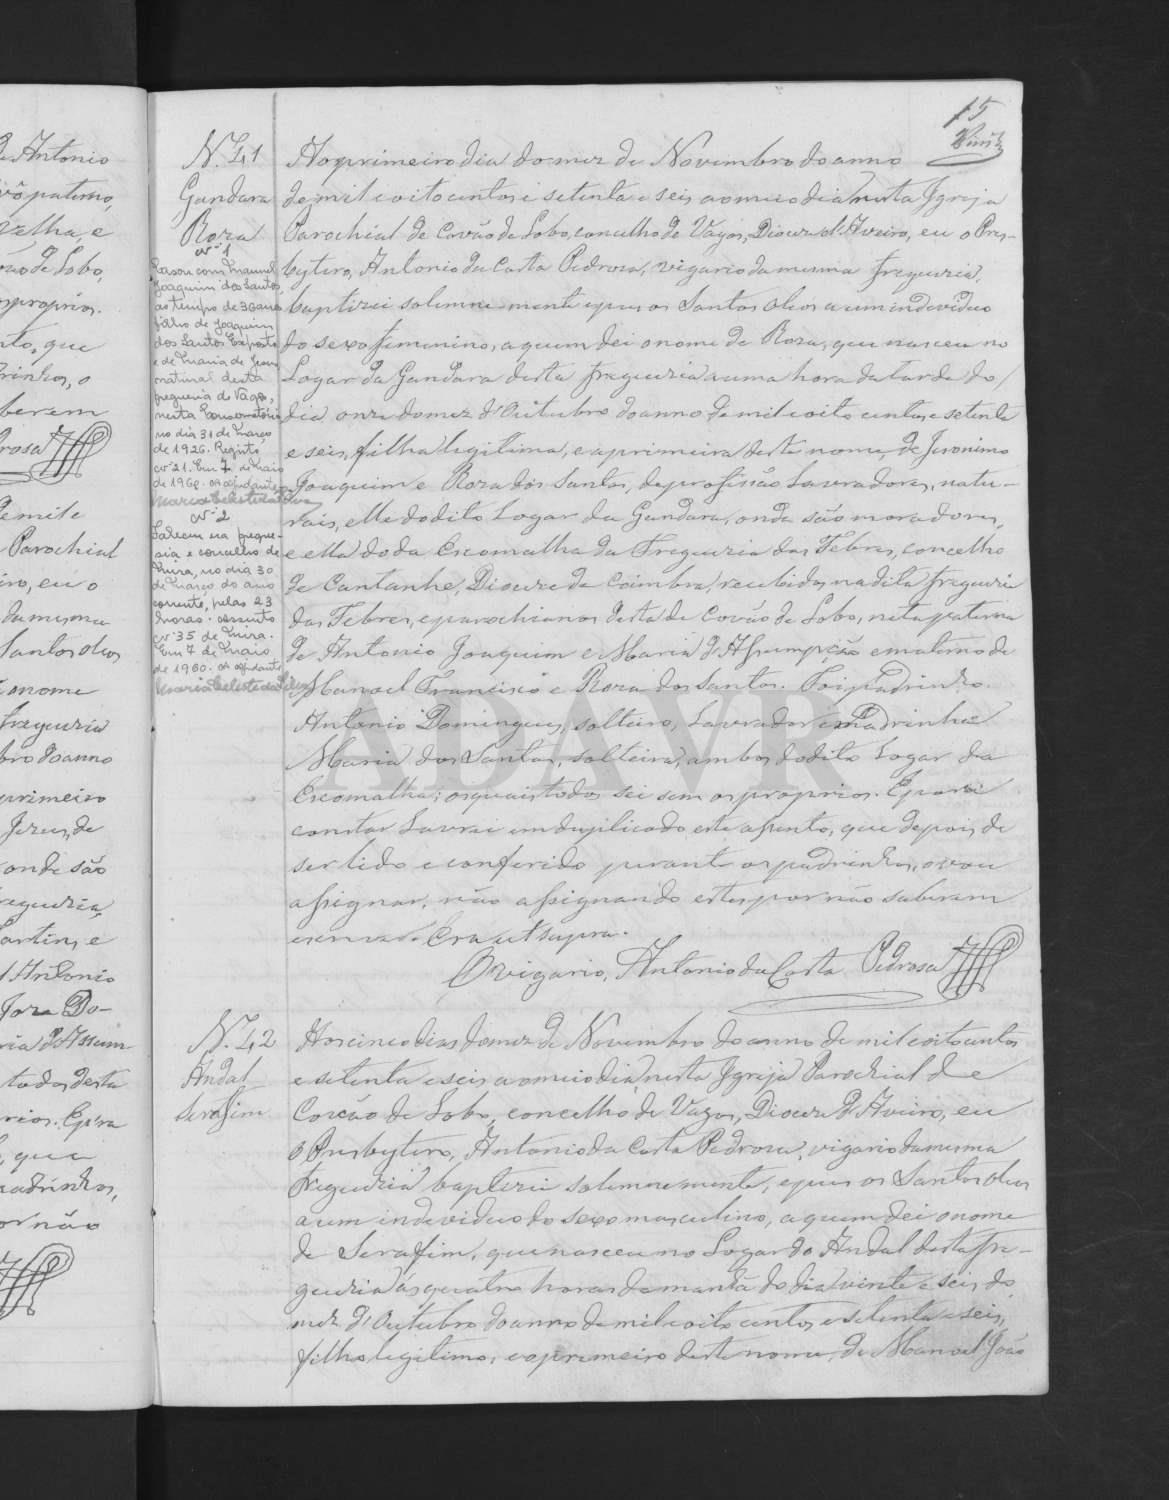 15
N. 41
Gandara
Roza
Nº 1
Casou com Manuel
Joaquim dos Santos,
ao tempo de 36 anos
filho de Joaquim
dos Santos Exposto
e de Maria de Jesus
natural desta
freguesia de Vagos,
nesta Conservatória
no dia 31 de março
de 1926. Registo
nº 21. Em 7 de Maio
de 1960. O ajudante
Maria Celeste da Silva
Nº 2
Faleceu na fregue-
sia e concelho de
Mira, no dia 30
de março do ano
corrente, pelas 23
horas. assento
nº 35 de Mira.
Em 7 de Maio
de 1960. O ajudante
Maria Celeste da Silva
Ao primeiro dia do mez de Novembro do anno
de mil e oito centos e setenta e seis ao meio dia nesta Igreja
Parochial de Covão do Lobo, concelho de Vagos, Diocese d'Aveiro, eu o Pres-
bytero, Antonio da Costa Pedrosa, vigario da mesma freguezia,
baptizei solemne-mente e puz os Santos Oleos a um individuo
do sexo femenino, a quem dei o nome de Roza, que nasceu no
Logar da Gandara desta freguezia a uma hora da tarde do
dia onze do mez d'Outubro do anno de mil e oito centos e setenta
e seis, filha legitima, e a primeira deste nome, de Jeronimo
Joaquim e Roza dos Santos, de profissão Lavradores, natu-
raes, elle do dito Logar da Gandara, onde são moradores,
e ella do da Escomalha da Freguezia das Febres, concelho
de Cantanhe, Diocese de Coimbra, recebidos na dita freguezia
das Febres, e parochianos desta de Covão do Lobo, neta paterna
de Antonio Joaquim e Maria d'Assumpção e materno de
Manoel Francisco e Roza dos Santos. Foi padrinho
Antonio Domingues, solteiro, Lavrador e madrinha
Maria dos Santos, solteira, ambos do dito Logar da
Escomalha; os quais todos sei serem os proprios. E para
constar Lavrei em duplicado este assento, que depois de
ser lido e conferido perante os padrinhos, o vou
assignar, não assignando estes por não saberem
escrever. Era ut supra.
O vigario, Antonio da Costa Pedrosa
N. 42
Andal
Serafim
Aos cinco dias do mez de Novembro do anno de mil e oito centos
e setenta e seis ao meio dia, nesta Igreja Parochial de
Covão do Lobo, concelho de Vagos, Diocese d'Aveiro, eu
o Presbytero, Antonio da Costa Pedrosa, vigario da mesma
freguezia baptizei solemnemente, e puz os Santos Oleos
a um individuo do sexo masculino, a quem dei o nome
de Serafim, que nasceu no Logar do Andal desta fre-
guezia ás quatro horas da manhã do dia vinte e seis do
mez d'Outubro do anno de mil e oito centos e setenta e seis,
filho legitimo, e o primeiro deste nome, de Manoel João
ADAVR